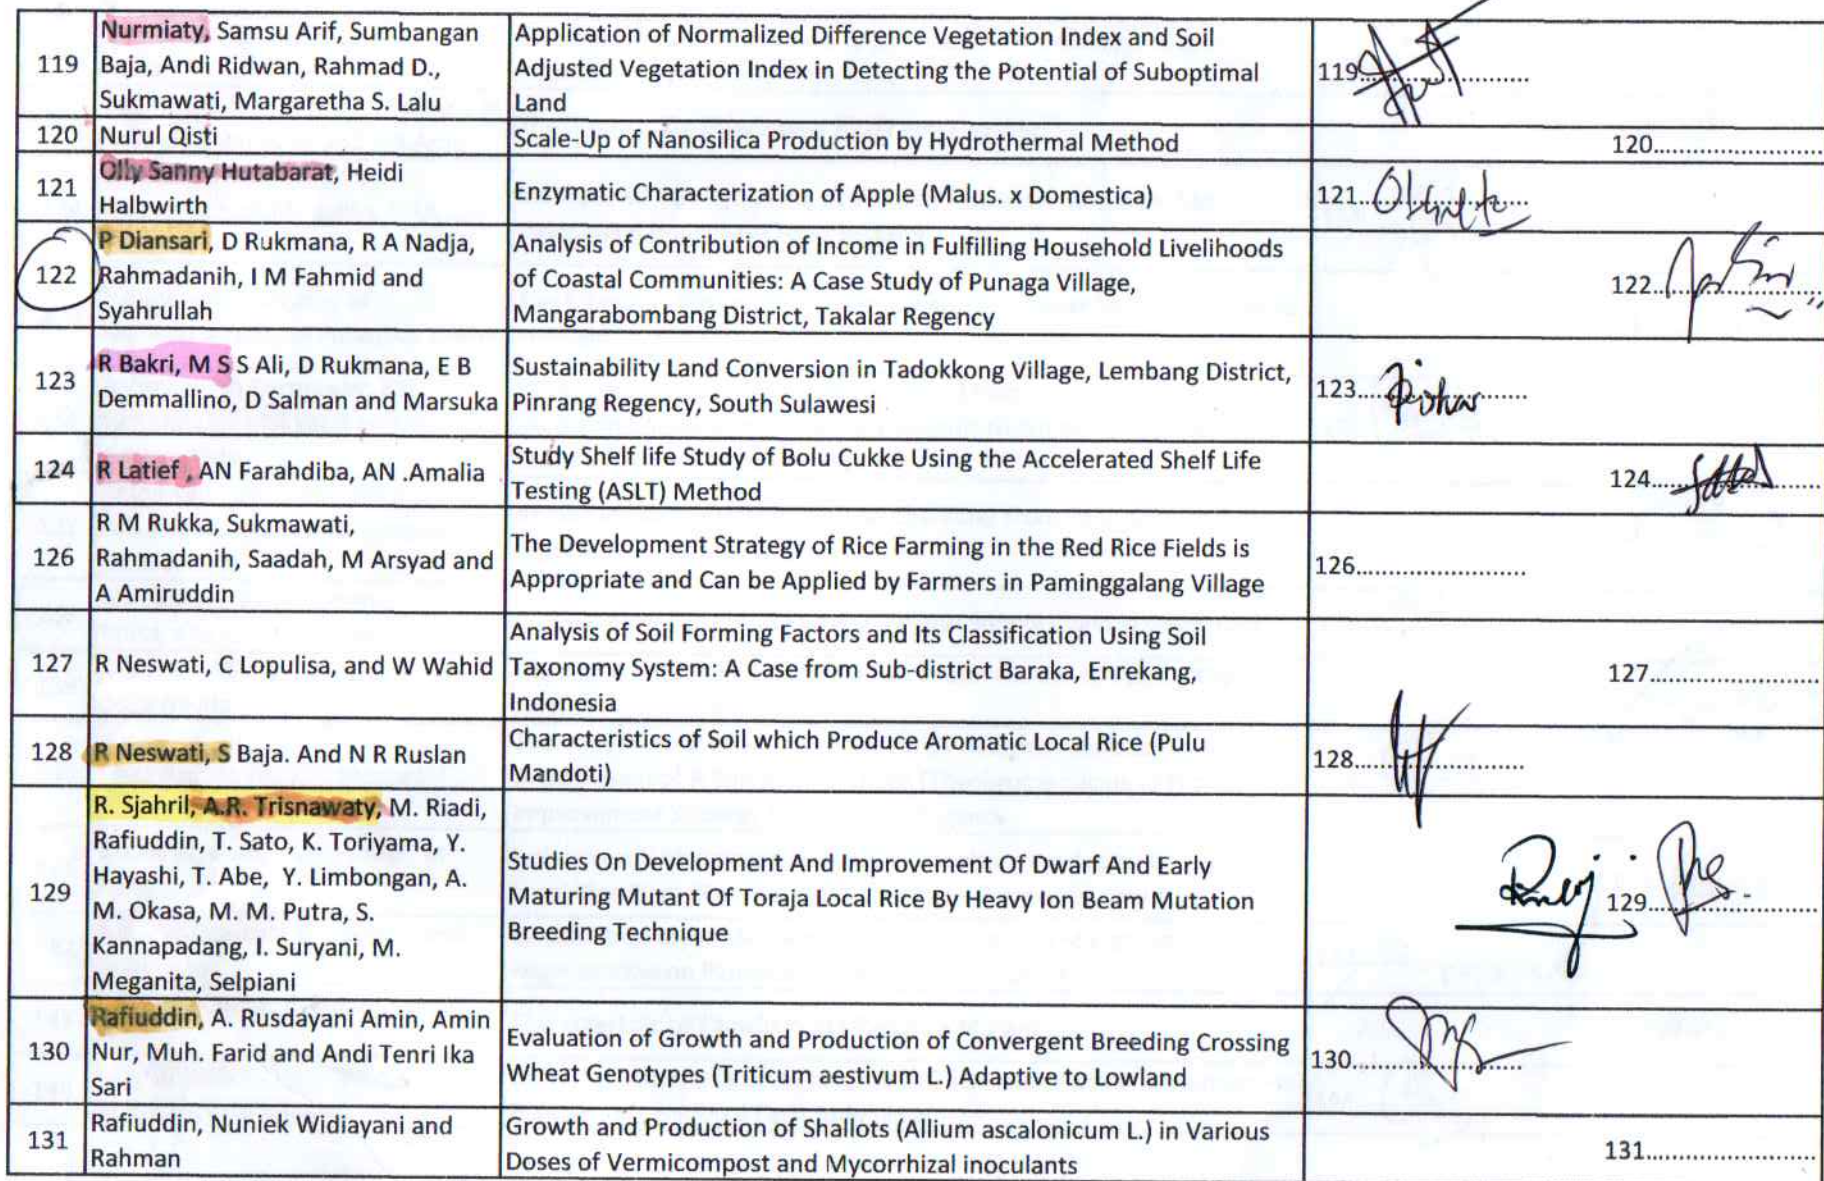 119
Nurmiaty, Samsu Arif, Sumbangan
Baja, Andi Ridwan, Rahmad D.,
Sukmawati, Margaretha S. Lalu
Application of Normalized Difference Vegetation Index and Soil
Adjusted Vegetation Index in Detecting the Potential of Suboptimal
Land
119..................
120
Nurul Qisti
Scale-Up of Nanosilica Production by Hydrothermal Method
120..................
121
Olly Sanny Hutabarat, Heidi
Halbwirth
Enzymatic Characterization of Apple (Malus. x Domestica)
121..................
122
P Diansari, D Rukmana, R A Nadja,
Rahmadanih, I M Fahmid and
Syahrullah
Analysis of Contribution of Income in Fulfilling Household Livelihoods
of Coastal Communities: A Case Study of Punaga Village,
Mangarabombang District, Takalar Regency
122..................
123
R Bakri, M S S Ali, D Rukmana, E B
Demmallino, D Salman and Marsuka
Sustainability Land Conversion in Tadokkong Village, Lembang District,
Pinrang Regency, South Sulawesi
123..................
124
R Latief , AN Farahdiba, AN .Amalia
Study Shelf life Study of Bolu Cukke Using the Accelerated Shelf Life
Testing (ASLT) Method
124..................
126
R M Rukka, Sukmawati,
Rahmadanih, Saadah, M Arsyad and
A Amiruddin
The Development Strategy of Rice Farming in the Red Rice Fields is
Appropriate and Can be Applied by Farmers in Paminggalang Village
126..................
127
R Neswati, C Lopulisa, and W Wahid
Analysis of Soil Forming Factors and Its Classification Using Soil
Taxonomy System: A Case from Sub-district Baraka, Enrekang,
Indonesia
127..................
128
R Neswati, S Baja. And N R Ruslan
Characteristics of Soil which Produce Aromatic Local Rice (Pulu
Mandoti)
128..................
129
R. Sjahril, A.R. Trisnawaty, M. Riadi,
Rafiuddin, T. Sato, K. Toriyama, Y.
Hayashi, T. Abe, Y. Limbongan, A.
M. Okasa, M. M. Putra, S.
Kannapadang, I. Suryani, M.
Meganita, Selpiani
Studies On Development And Improvement Of Dwarf And Early
Maturing Mutant Of Toraja Local Rice By Heavy Ion Beam Mutation
Breeding Technique
129..................
130
Rafiuddin, A. Rusdayani Amin, Amin
Nur, Muh. Farid and Andi Tenri Ika
Sari
Evaluation of Growth and Production of Convergent Breeding Crossing
Wheat Genotypes (Triticum aestivum L.) Adaptive to Lowland
130..................
131
Rafiuddin, Nuniek Widiayani and
Rahman
Growth and Production of Shallots (Allium ascalonicum L.) in Various
Doses of Vermicompost and Mycorrhizal inoculants
131..................